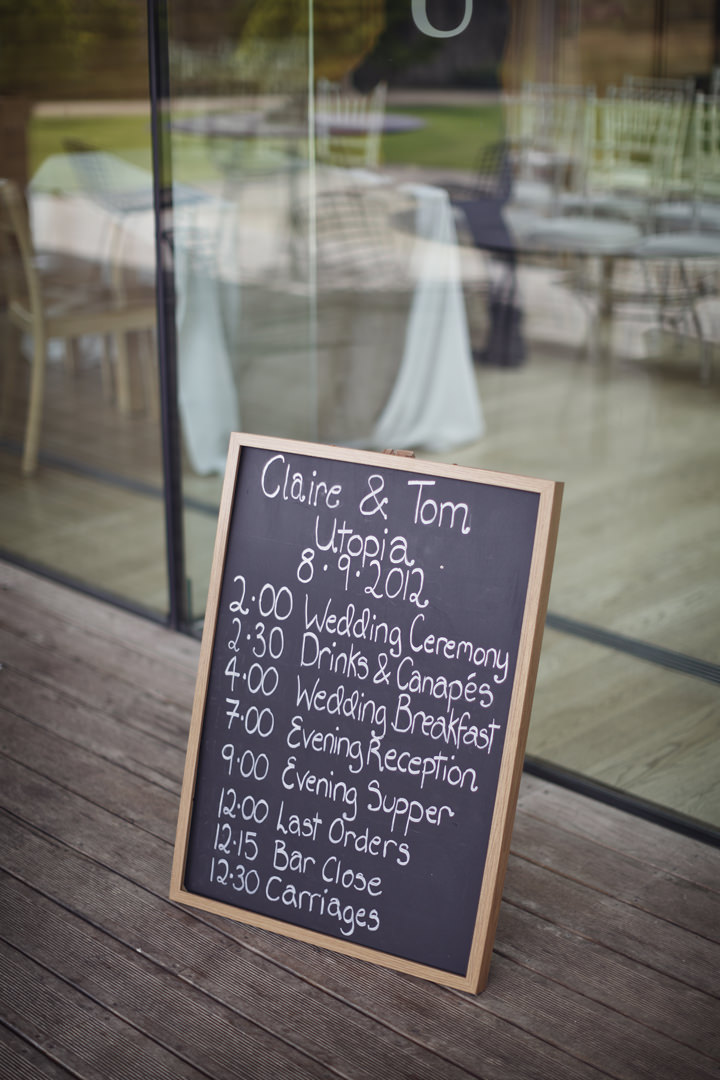 U
Claire & Tom
Utopia
8·9·2012
2·00 Wedding Ceremony
2·30 Drinks & Canapés
4·00 Wedding Breakfast
7·00 Evening Reception
9·00 Evening Supper
12·00 Last Orders
12·15 Bar Close
12·30 Carriages